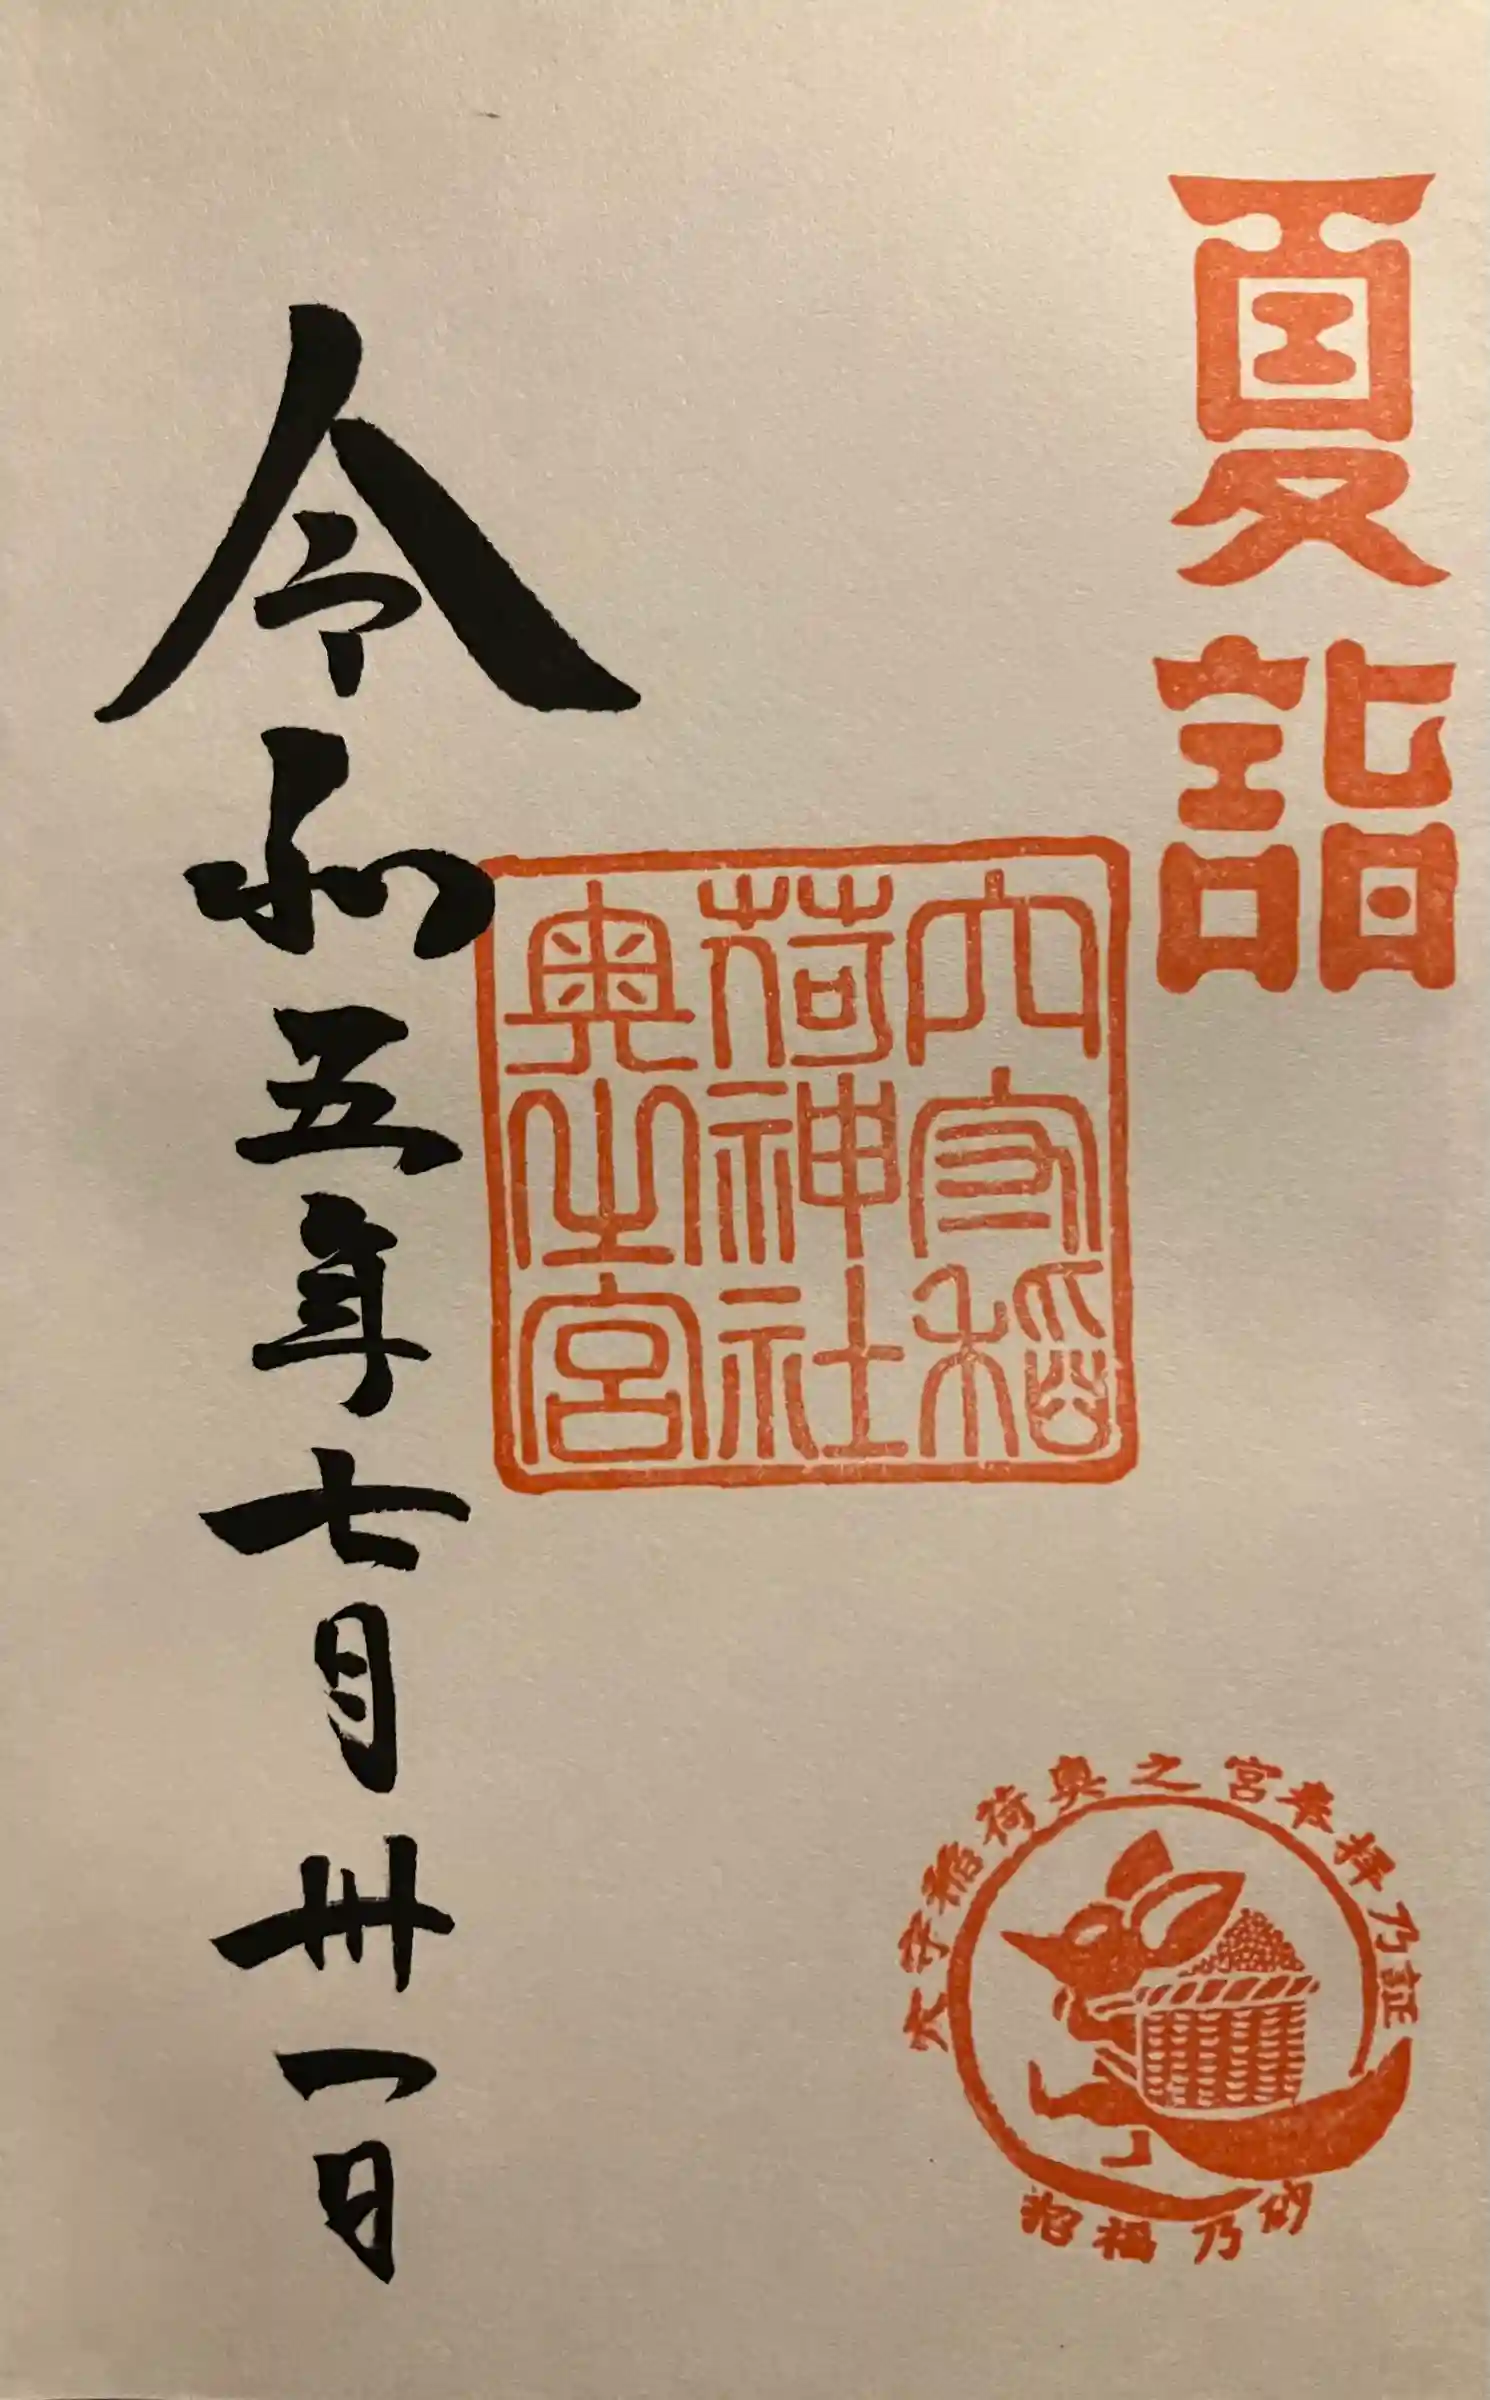 夏詣
穴守稲
荷神社
奥之宮
令和五年七月卅一日
穴守稲荷奥之宮参拝乃証
招福乃砂